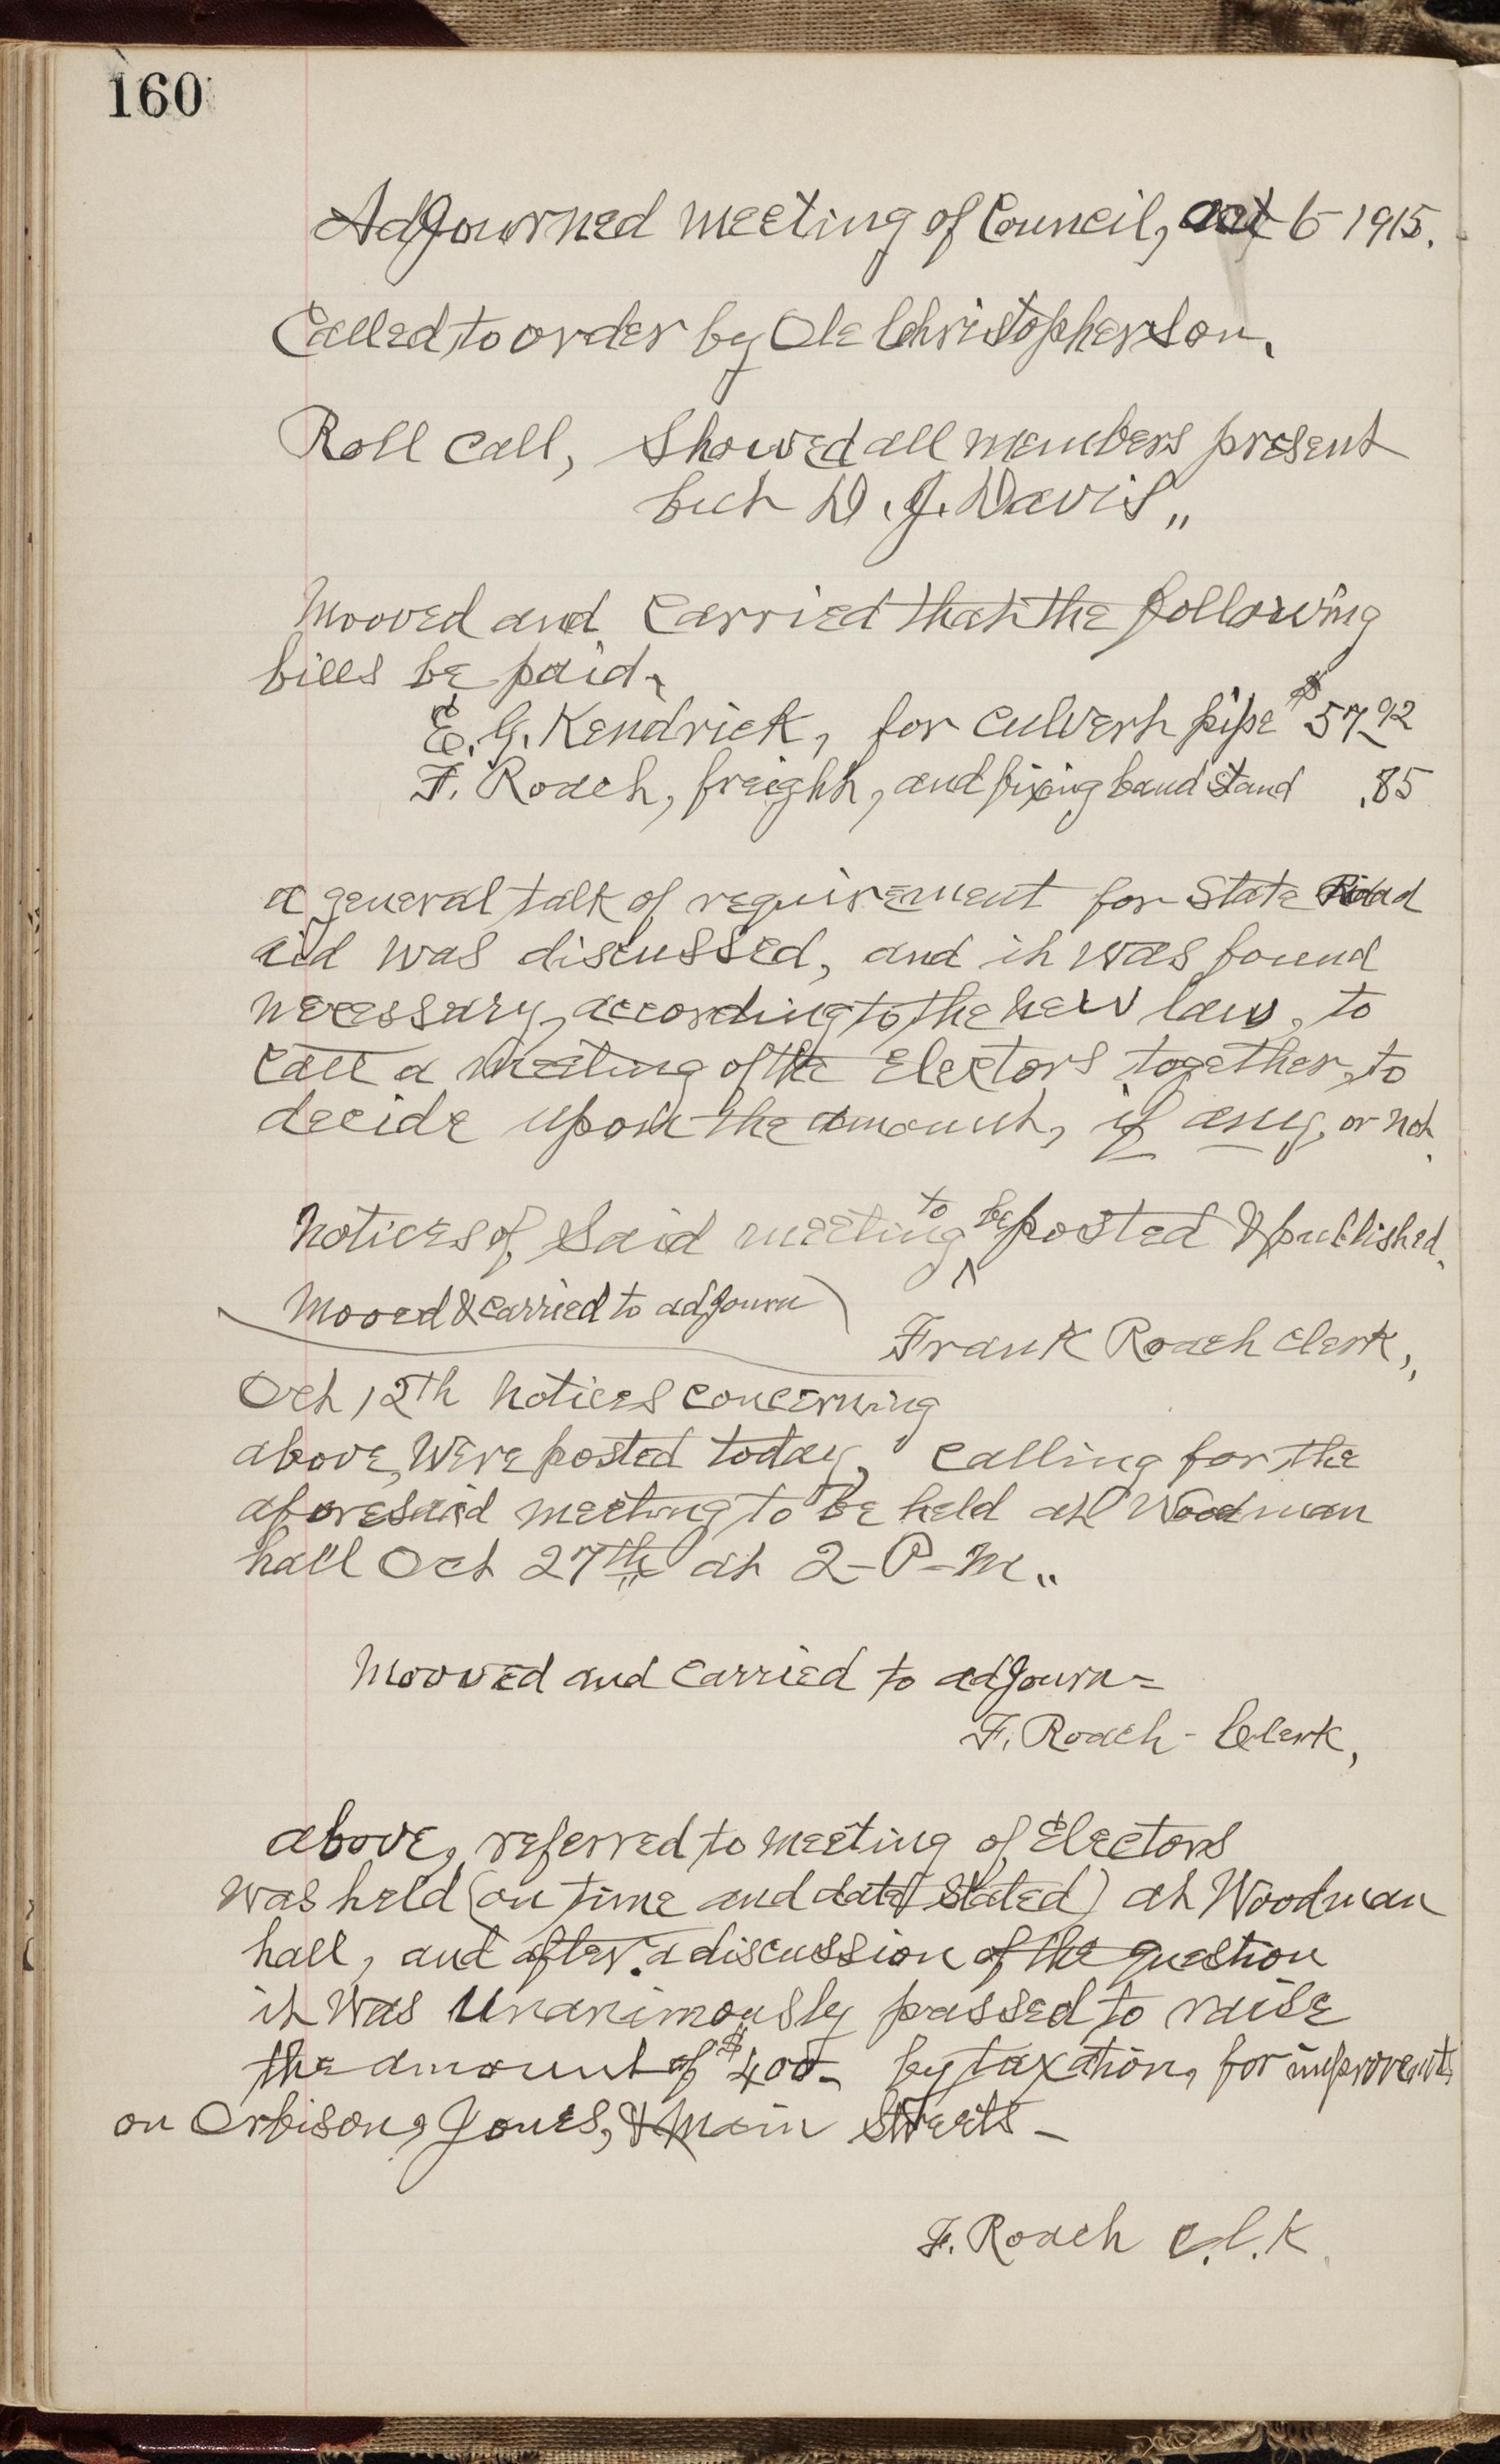 160
Adjourned meeting of Council, Oct 6 1915.
Called to order by Ole Christopherson.
Roll Call, Showed all members present
but D. J. Davis,,
Mooved and Carried that the following
bills be paid.
E. G. Kendrick, for Culvert pipe $57.92
F. Roach, freight, and fixing band stand .85
a general talk of requirement for State Road
aid was discussed, and it was found
necessary, according to the new law, to
call a meeting of the Electors together, to
decide upon the amount, if any, or not.
Notices of Said meeting to be posted & published.
Mooed & Carried to adJourn
Frank Roach Clerk,,
Oct 12th Notices concerning
above, Were posted today, calling for the
aforesaid meeting to be held at Woodman
hall Oct 27th at 2-P-M..
Mooved and Carried to adJourn=
F. Roach- Clerk,
above, referred to meeting of Electors
was held (on time and date stated) at Woodman
hall, and after a discussion of the question
it was Unanimously passed to raise
the amount of $400- by taxation, for improvents
on Orbison, Jones, & Main Streets-
F. Roach C.l.k.